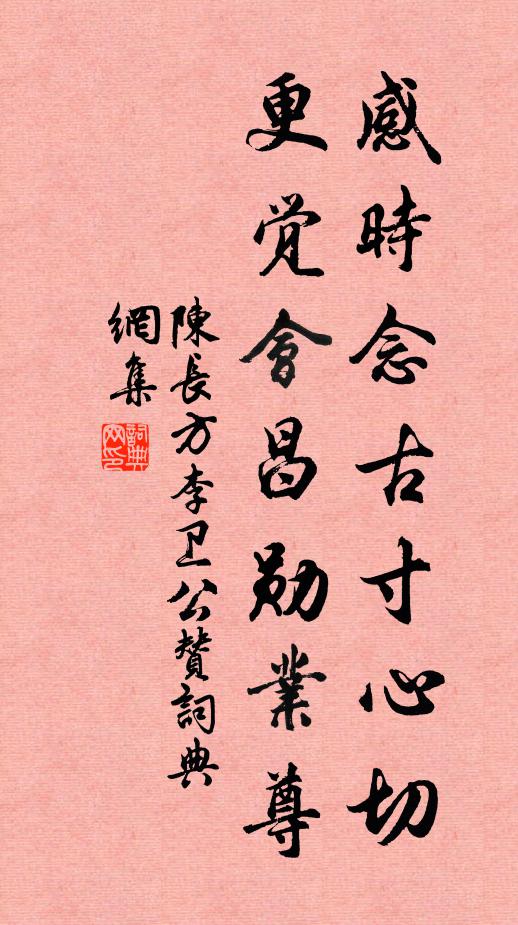 感時念古寸心切
更覚會昌勋業尊
陳長方李卫公赞詞典
網集
詞典
网印